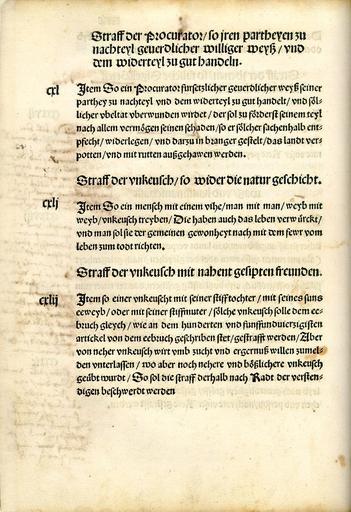 Straff der Procurator/ so jren partheyen zu
nachteyl geuerdlicher williger weyß/ vnd
dem widerteyl zu gut handeln.
cxl Item So ein Procurator fursetzlicher geuerdlicher weyß seiner
parthey zu nachteyl vnd dem widerteyl zu gut handelt/ vnd söl-
licher vbeltat vberwunden wirdet/ der sol zu förderst seinem teyl
nach allem vermögen seinen schaden/ so er sölcher sachenhalb ent-
pfecht/ widerlegen/ vnd darzu in branger gestelt/ das landt ver-
potten/ vnd mit rutten außgehawen werden.
Straff der vnkeusch/ so wider die natur geschicht.
cxlj Item So ein mensch mit einem vihe/ man mit man/ weyb mit
weyb/ vnkeusch treyben/ Die haben auch das leben verwürckt/
vnd man sol sie der gemeinen gewonheyt nach mit dem fewr vom
leben zum todt richten.
Straff der vnkeusch mit nahent gesipten freunden.
cxlij Item so einer vnkeuscht mit seiner stifftochter/ mit seines suns
eeweyb/ oder mit seiner stiffmuter/ sölche vnkeusch solle dem ee-
bruch gleych/ wie an dem hunderten vnd funffundvierzigisten
artickel von dem eebruch geschriben stet/ gestrafft werden/ Aber
von neher vnkeusch wirt vmb zucht vnd ergernuß willen zumel-
den vnterlassen/ wo aber noch nehere vnd bößlichere vnkeusch
geübt wurdt/ So sol die straff derhalb nach Radt der versten-
digen beschwerdt werden